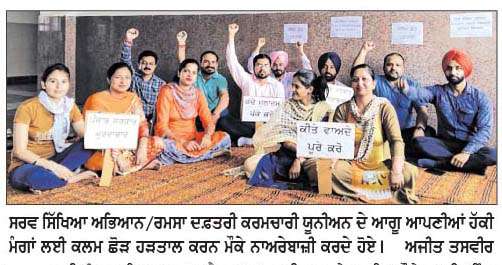 ਪੰਜਾਬ ਸਰਕਾਰ
ਮੁਰਦਾਬਾਦ
ਕੱਚੇ ਮੁਲਾਜ਼ਮ
ਪੱਕੇ ਕਰੋ
ਕੀਤੇ ਵਾਅਦੇ
ਪੂਰੇ ਕਰੋ
ਸਰਵ ਸਿੱਖਿਆ ਅਭਿਆਨ/ਰਮਸਾ ਦਫ਼ਤਰੀ ਕਰਮਚਾਰੀ ਯੂਨੀਅਨ ਦੇ ਆਗੂ ਆਪਣੀਆਂ ਹੱਕੀ
ਮੰਗਾਂ ਲਈ ਕਲਮ ਛੋੜ ਹੜਤਾਲ ਕਰਨ ਮੌਕੇ ਨਾਅਰੇਬਾਜ਼ੀ ਕਰਦੇ ਹੋਏ। ਅਜੀਤ ਤਸਵੀਰ